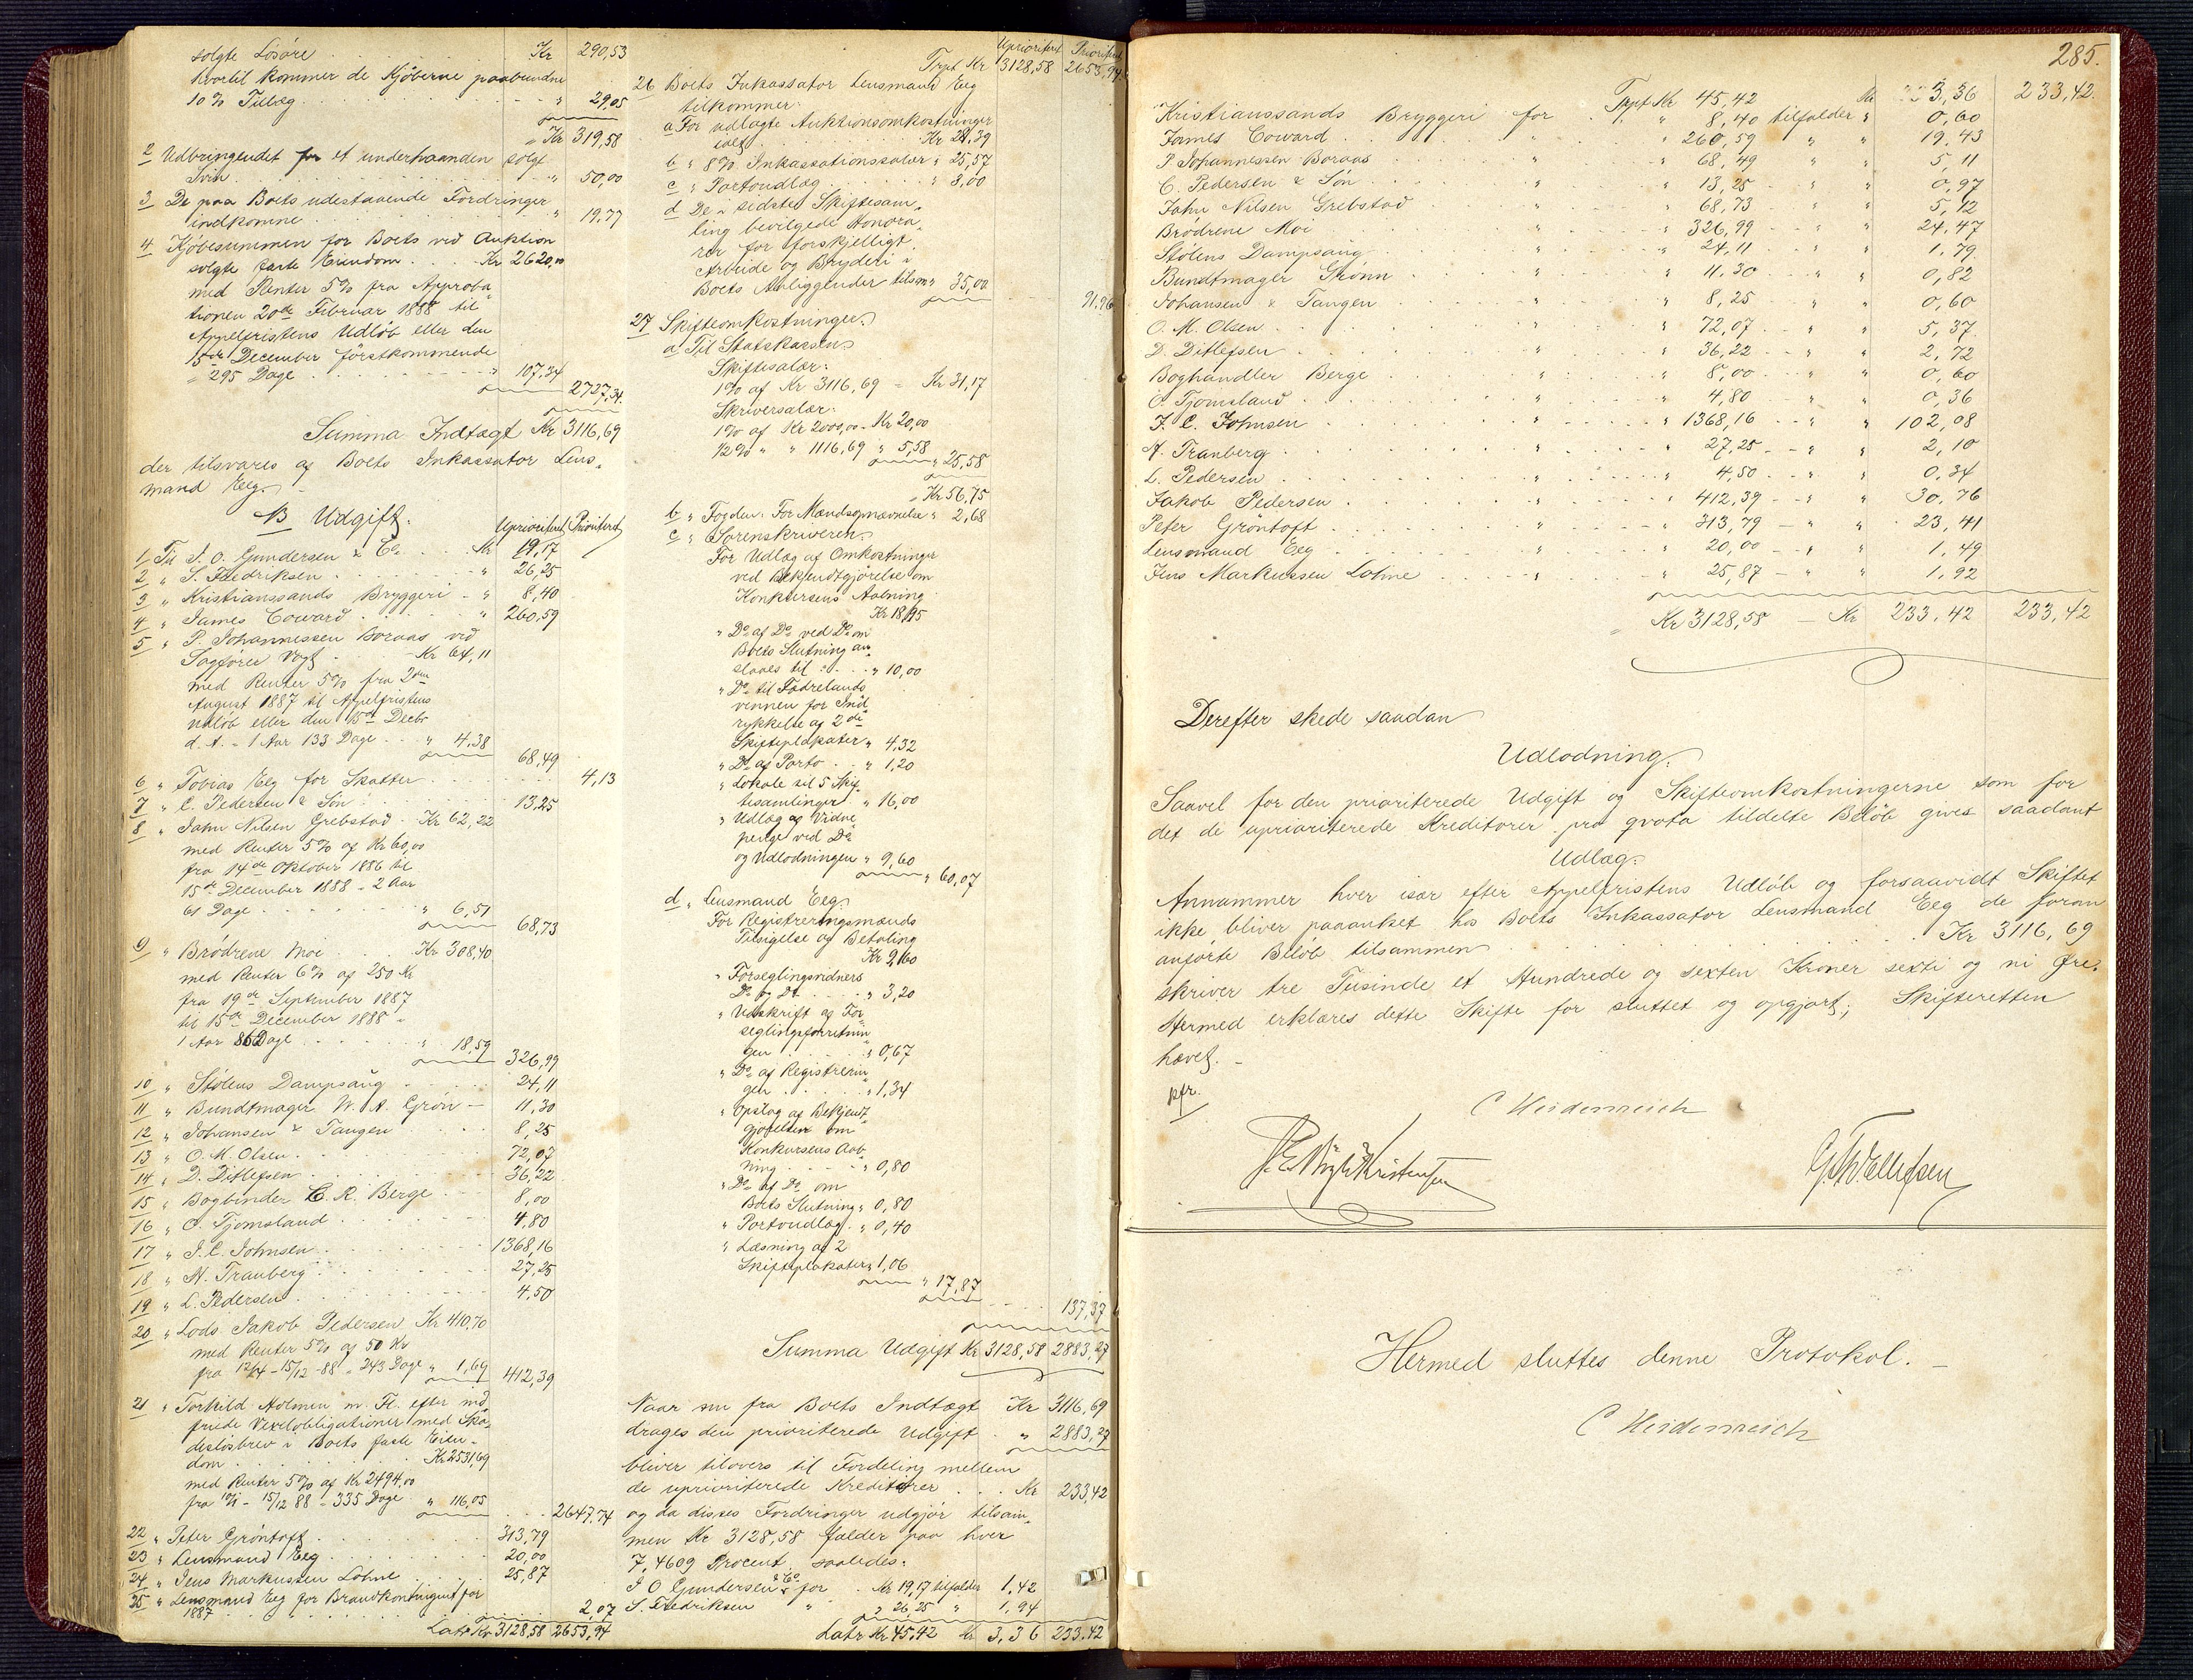 solgte Løsøre . . . Kr 290,53
hvortil kommer de Kjøberne paabundne
10% Tillæg . . . " 29,05
Kr 319,58
2 Udbringendet for et underhaanden solgt
Svin . . . " 50,00
3 De paa Boets udestaaende Fordringer
indkomne . . . " 19,77
4 Kjøbesummen for Boets ved Auktion
solgte faste Eiendom . . . Kr 2620,00
med Renter 5% fra Approba
tionen 20de Februar 1888 til
Appelfristens Udløb eller den
15de December førstkommende
= 295 Dage . . . " 107,34
2727,34.
Summa Indtægt Kr 3116,69
der tilsvares af Boets Inkassator Lens-
mand Eeg. -
B Udgift. Uprioritert Prioritert
1 Til J. O. Gundersen & Co . . . Kr 19,17
2 " S. Fredriksen . . . " 26,25
3 " Kristianssands Bryggeri - " 8,40
4 " James Coward . . . " 260,59
5 " P. Johannessen Boraas ved
Sagfører Vogt . . . Kr 64,11
med Renter 5% fra 2den
August 1887 til Appelfristens
udløb eller den 15de Decbr
d. A. = 1 Aar 133 Dage . . " 4,38
68,49
6 " Tobias Eeg for Skatter . . . 4,13
7 " C. Pedersen & Søn . . . 13,25
8 " Jahn Nilsen Grebstad . Kr 62,22
med Renter 5% af Kr 60,00
fra 14de Oktober 1886 til
15de December 1888 = 2 Aar
61 Dage . . . " 6,51
68,73
9 " Brødrene Moi . . . Kr 308,40
med Renter 6% af 250 Kr
fra 19de September 1887
til 15de December 1888 =
1 Aar 86 Dage . . . " 18,59
326,99
10 " Stølens Dampsaug . . . 24,11
11 " Bundtmager W. A. Grøn - 11,30
12 " Johansen & Tangen . . . 8,25
13 " O. M. Olsen . . . 72,07
14 " D. Ditlefsen . . . 36,22
15 " Bogbinder C. R. Berge . . . 8,00
16 " O. Tjomsland . . . 4,80
17 " J. C. Johnsen . . . 1368,16
18 " N. Tranberg . . . 27,25
19 " L. Pedersen . . . 4,50
20 " Lods Jakob Pedersen Kr 410,70
med Renter 5% af 50 Kr
fra 12/4 - 15/12 - 88 = 243 Dage " 1,69
412,39
21 " Torkild Holmen m. Fl. efter ind
friede Vexelobligationer med Ska
desløsbrev i Boets faste Eien-
dom . . . Kr 2531,69
med Renter 5% af Kr 2494,00
fra 10/1 - 15/12 88 = 335 Dage " 116,05
2647,74
22 " Peter Grøntoft . . . 313,79
23 " Lensmand Eeg . . . 20,00
24 " Jens Markussen Lohne . . . 25,87
25 " Lensmand Eeg for Brandkontingent for
1887 . . . 2,07
Latr Kr 3128,58 2653,94
Uprioritert Prioritert
Trpt Kr 3128,58 2653,94
26 Boets Inkassator Lensmand Eeg
tilkommer:
a For udlagte Auktionsomkostninger
ialt . . . Kr 28,39
b " 8% Inkassationssalær " 25,57
c " Portoudlæg . . . " 3,00
d De i sidste Skiftesam-
ling bevilgede Honora-
rer for forskjelligt
Arbeide og Bryderi i
Boets Anliggender tilsm " 35,00
91,96
27 Skifteomkostninger.
a Til Statskassen
Skiftesalær:
1% af Kr 3116,69 = Kr 31,17
Skriversalær:
1% af Kr 2000,00 = Kr 20,00
1/2% " " 1116,69 " 5,58
" 25,58
Kr 56,75
b " Fogden: For Mændsopnævnelse " 2,68
c " Sorenskriveren:
For Udlæg af Omkostninger
ved Bekjendtgjørelse om
Konkursens Aabning
Kr 18,95
" Do af Do ved Do om
Boets Slutning an
slaaes til . . . " 10,00
" Do til Fædrelands
vennen for Ind
rykkelse af 2de
Skifteplakater " 4,32
" Do af Porto . . " 1,20
" Lokale til 5 Skif-
tesamlinger . . " 16,00
" Udlæg af Vidne
penge ved Do
og Udlodningen " 9,60
" 60,07
d " Lensmand Eeg.
For Registreringsmænds
Tilsigelse og Betaling
Kr 9,60
" Forseglingsvidners
Do og Do . . . " 3,20
" Udskrift af For
seglingsforretnin
gen . . . " 0,67
" Do af Registrerin
gen . . . " 1,34
" Opslag af Bekjendt
gjørelsen om
Konkursens Aab
ning . . . " 0,80
" Do af Do om
Boets Slutning " 0,80
" Portoudlæg . " 0,40
" Læsning af 2
Skifteplakater " 1,06
" 17,87
137,37
Summa Udgift Kr 3128,58 2883,27
Naar nu fra Boets Indtægt Kr 3116,69
drages den prioriterede Udgift . " 2883,27
bliver tilovers til Fordeling mellem
de uprioriterede Kreditorer . . . Kr 233,42
og da disses Fordringer udgjør tilsam-
men Kr 3128,58 falder paa hver
7,4609 Procent saaledes:
J O Gundersen & Co for . Kr 19,17 tilfalder 1,42
S. Fredriksen " " 26,25 " 1,94
Latr Kr 45,42 Kr 3,36 233,42
285.
Trpt Kr 45,42 Kr 3,36 233,42.
Kristianssands Bryggeri for . " 8,40 tilfalder " 0,60
James Coward . . . " 260,59 " " 19,43
P Johannessen Boraas . . . " 68,49 " " 5,11
C. Pedersen & Søn . . . " 13,25 " " 0,97
Jahn Nilsen Grebstad . . . " 68,73 " " 5,12
Brødrene Moi . . . " 326,99 " " 24,47
Stølens Dampsaug . . . " 24,11 " " 1,79
Bundtmager Grønn . . . " 11,30 " " 0,82
Johansen & Tangen . . . " 8,25 " " 0,60
O. M. Olsen . . . " 72,07 " " 5,37
D. Ditlefsen . . . " 36,22 " " 2,72
Boghandler Berge . . . " 8,00 " " 0,60
O. Tjomsland . . . " 4,80 " " 0,36
J. C. Johnsen . . . " 1368,16 " " 102,08
N. Tranberg . . . " 27,25 " " 2,10
L. Pedersen . . . " 4,50 " " 0,34
Jakob Pedersen . . . " 412,39 " " 30,76
Peter Grøntoft . . . " 313,79 " " 23,41
Lensmand Eeg . . . " 20,00 " " 1,49
Jens Markussen Lohne . . . " 25,87 " " 1,92
Kr 3128,58 - Kr 233,42 233,42
Derefter skede saadan
Udlodning.
Saavel for den prioriterede Udgift og Skifteomkostningerne som for
det de uprioriterede Kreditorer pro qvota tildelte Beløb gives saadant
Udlæg.
Annammer hver især efter Appelfristens Udløb og forsaavidt Skiftet
ikke bliver paaanket hos Boets Inkassator Lensmand Eeg de foran
anførte Beløb tilsammen . . . Kr 3116,69
skriver tre Tusinde et Hundrede og sexten Kroner sexti og ni Øre.
Hermed erklæres dette Skifte for sluttet og opgjort; Skifteretten
hævet. -
pfr.
C Heidenreich
G. Th. Ellefsen
Hermed sluttes denne Protokol. -
C Heidenreich